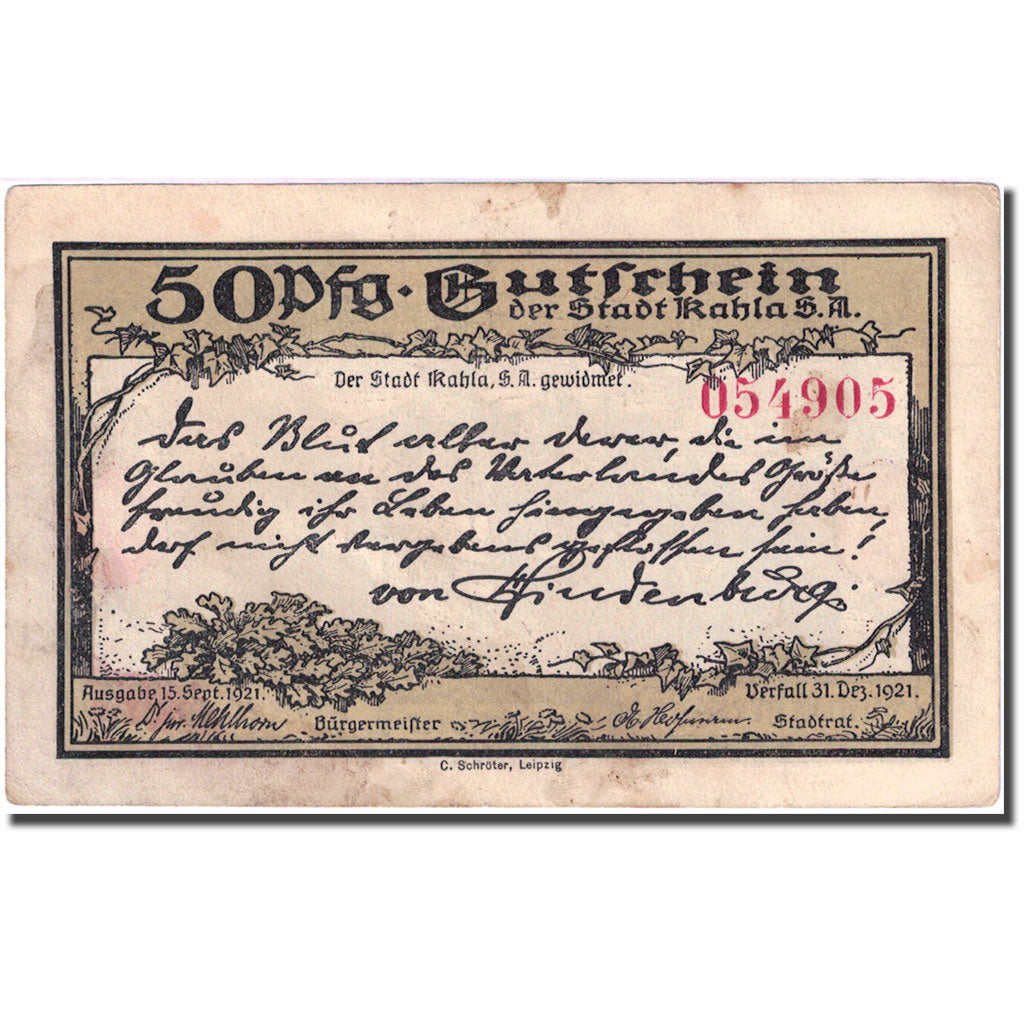 50 Pfg. Gutschein
der Stadt Kahla S.A.
Der Stadt Kahla, S.A. gewidmet.
054905
Das Blut aller derer, die im
Glauben an des Vaterlandes Größe
freudig ihr Leben hingegeben haben,
darf nicht vergebens geflossen sein!
von Hindenburg.
Ausgabe 15. Sept. 1921.
Verfall 31. Dez. 1921.
Dr. jur. Mehlhorn Bürgermeister
Stadtrat.
C. Schröter, Leipzig